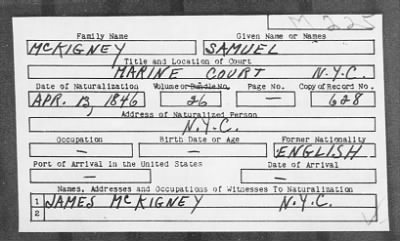 M225
Family Name Given Name or Names
McKIGNEY SAMUEL
Title and Location of Court
MARINE COURT N.Y.C.
Date of Naturalization Volume or Bundle No. Page No. Copy of Record No.
APR. 13, 1846 26 — 628
Address of Naturalized Person
N.Y.C.
Occupation Birth Date or Age Former Nationality
— — ENGLISH
Port of Arrival in the United States Date of Arrival
— —
Names, Addresses and Occupations of Witnesses To Naturalization
1 JAMES McKIGNEY N.Y.C.
2